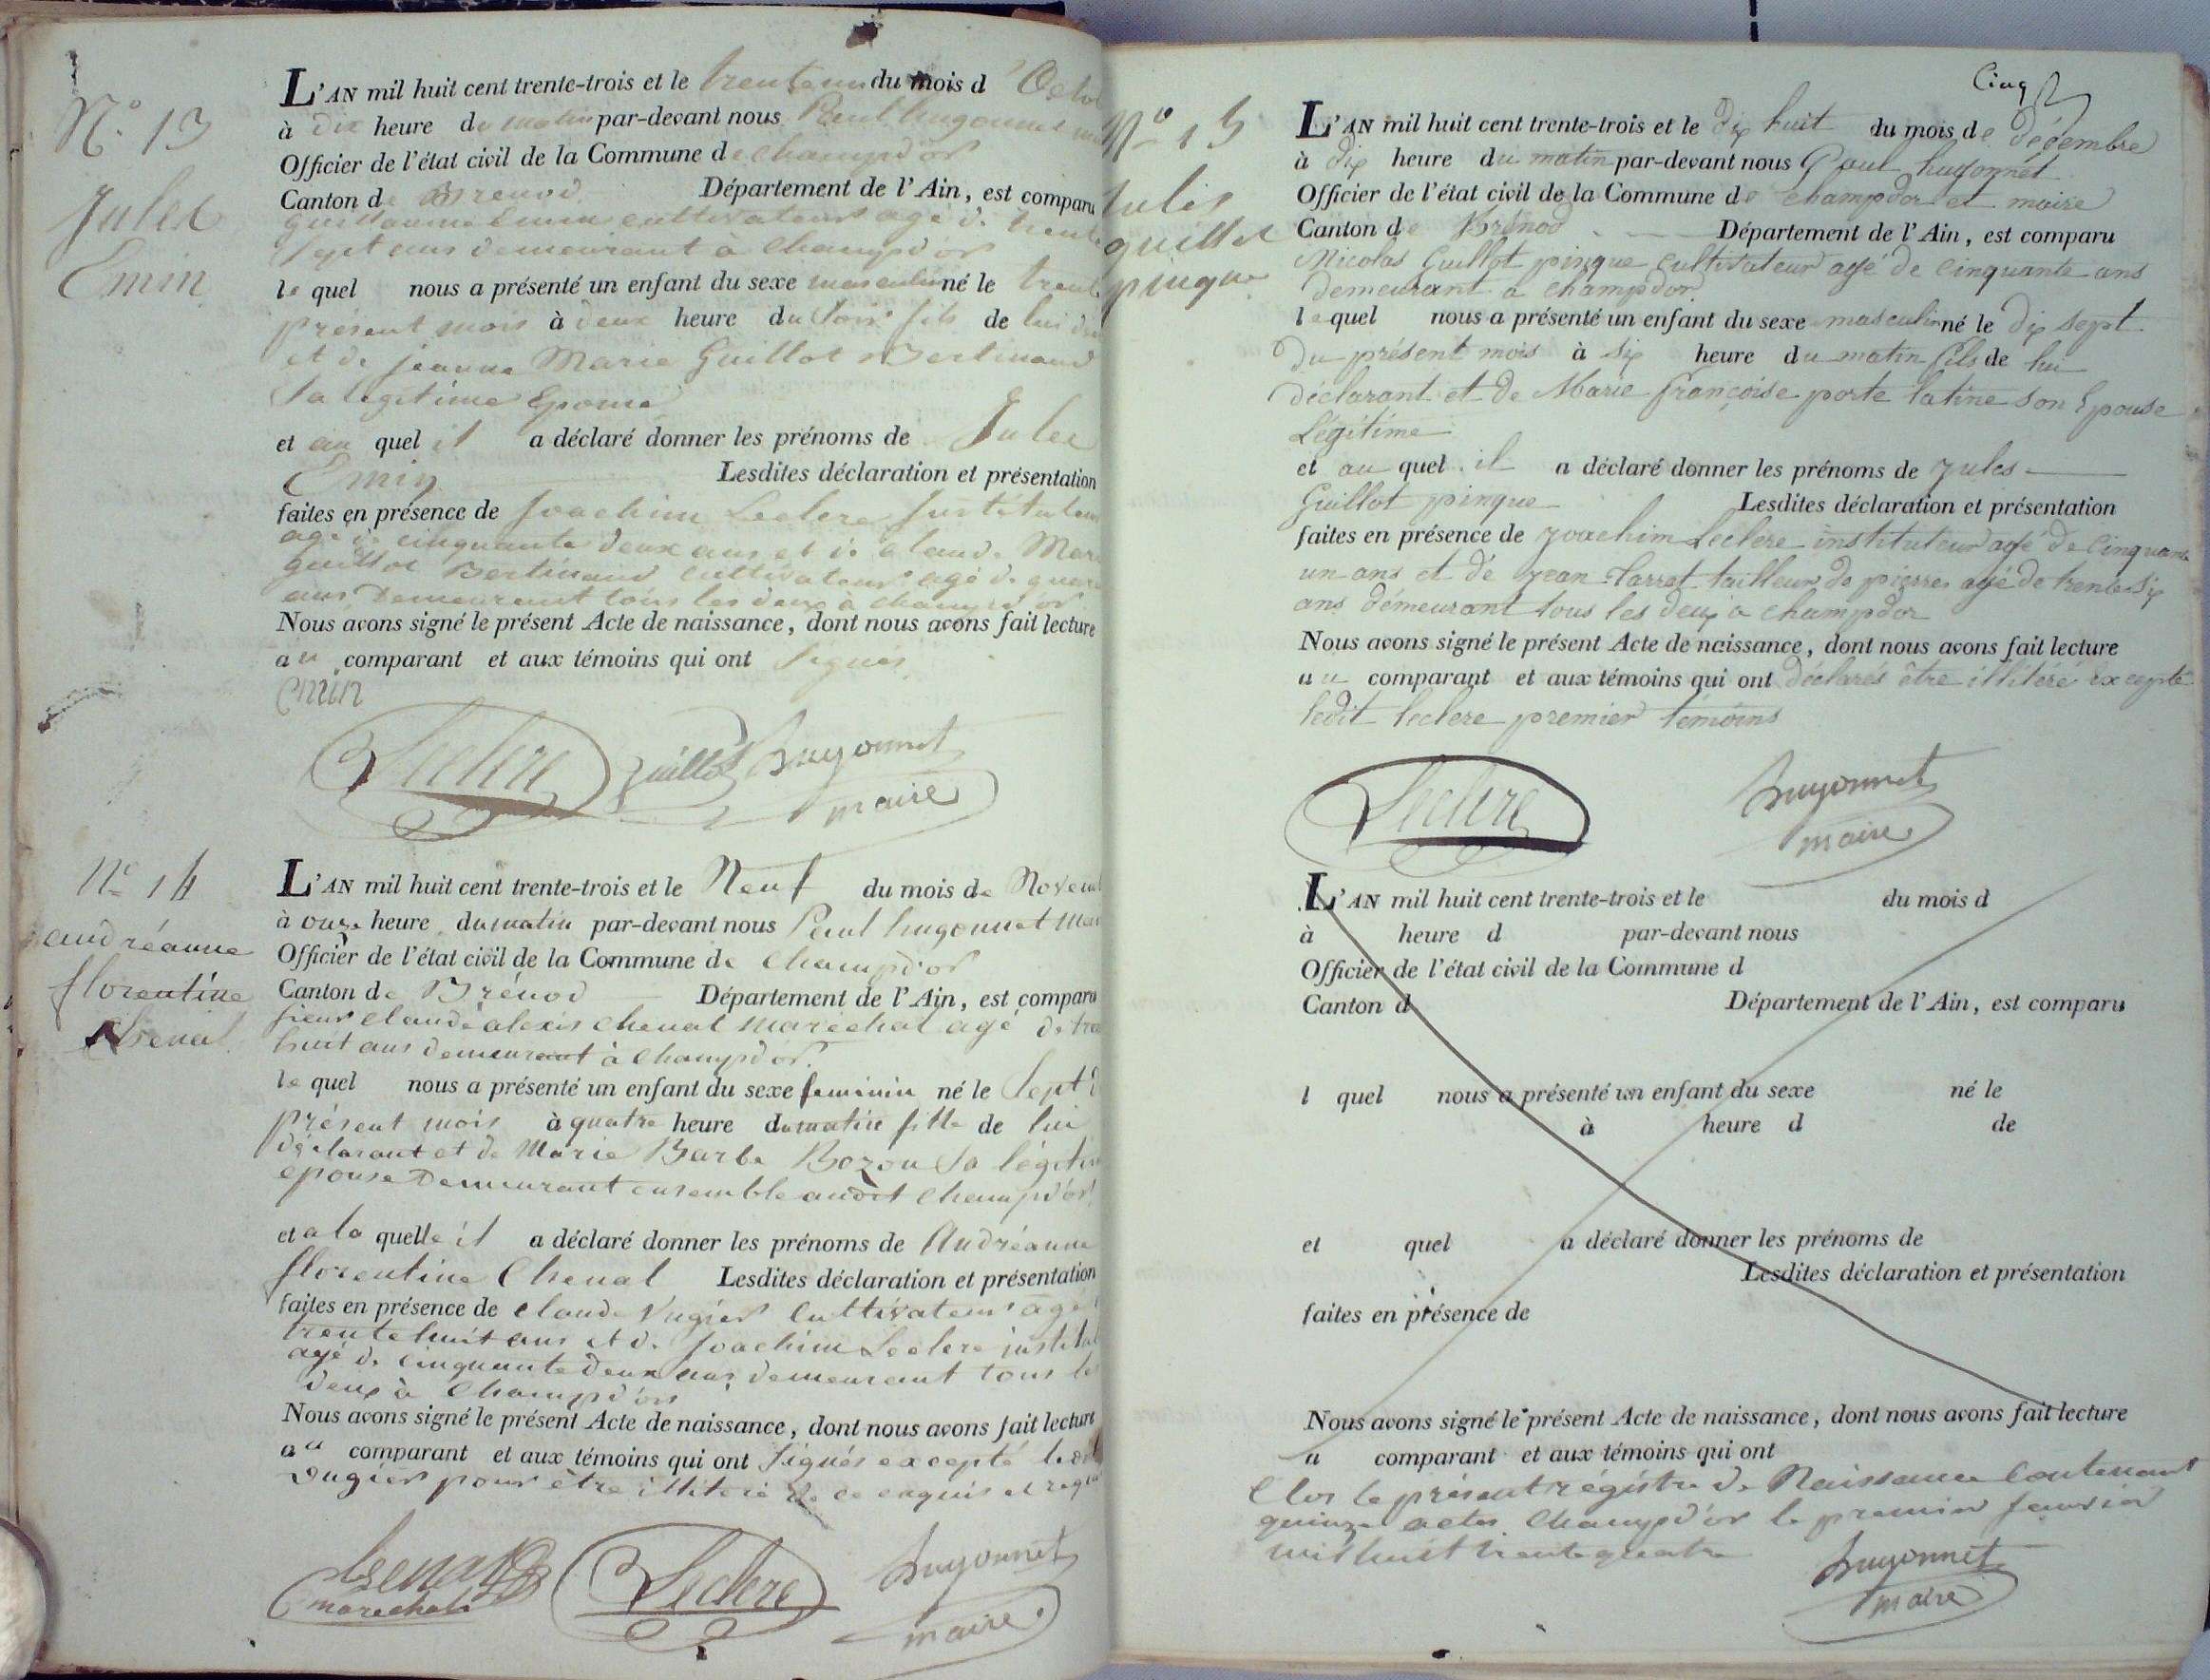 N° 13
Jules
Emin
L'AN mil huit cent trente-trois et le trente un du mois d'Octo
à dix heure du matin par-devant nous Paul hugonnet
Officier de l'état civil de la Commune de champd'or
Canton de Brenod Département de l'Ain, est comparu
guillaume Emin cultivateur agé de trente
sept ans demeurant à Champd'or
le quel nous a présenté un enfant du sexe masculin né le trente
présent mois à deux heure du soir fils de lui
et de jeanne Marie Guillot Bertinand
sa légitime Epouse
et au quel il a déclaré donner les prénoms de Jules
Emin Lesdites déclaration et présentation
faites en présence de Joachim Leclere Justituteur
agé de cinquante deux ans et de claude Marie
guillot Bertinand cultivateur agé de
ans Demeurant tous les deux à champd'or
Nous avons signé le présent Acte de naissance, dont nous avons fait lecture
au comparant et aux témoins qui ont signés
Emin
Leclere guillot hugonnet
maire
N° 14
andréanne
florentine
Chenal
L'AN mil huit cent trente-trois et le Neuf du mois de Novem
à onze heure du matin par-devant nous Paul hugonnet Mai
Officier de l'état civil de la Commune de Champd'or
Canton de Brénod Département de l'Ain, est comparu
sieur claude alexis chenal maréchal agé de tre
huit ans demeurant à Champd'or.
le quel nous a présenté un enfant du sexe feminin né le sept d
présent mois à quatre heure du matin fille de lui
déclarant et de Marie Barbe Bozon sa légiti
epouse Demeurant ensemble audit Champd'or
et a la quelle il a déclaré donner les prénoms de Andréanne
florentine Chenal Lesdites déclaration et présentation
faites en présence de claude Vugier cultivateur agé
trente huit ans et de Joachim Leclere institut
agé de cinquante deux ans demeurant tous les
deux à Champd'or
Nous avons signé le présent Acte de naissance, dont nous avons fait lecture
au comparant et aux témoins qui ont signés excepté ledit
Vugier pour être illitéré de ce enquis et requis
Chenal Leclere hugonnet
maréchal maire
Cinq
N° 15
Jules
guillot
pingue
L'AN mil huit cent trente-trois et le dix huit du mois de décembre
à dix heure du matin par-devant nous Paul hugonnet
Officier de l'état civil de la Commune de champdor et maire
Canton de Brénod Département de l'Ain, est comparu
Nicolas Guillot pingue cultivateur agé de cinquante ans
demeurant a champdor
le quel nous a présenté un enfant du sexe masculin né le dix sept
du présent mois à six heure du matin fils de lui
déclarant et de Marie françoise porte latine son Epouse
Légitime
et au quel il a déclaré donner les prénoms de jules
Guillot pingue Lesdites déclaration et présentation
faites en présence de joachim Leclere instituteur agé de cinquante
un ans et de jean tarret tailleur de pierres agé de trente six
ans démeurant tous les deux a champdor
Nous avons signé le présent Acte de naissance, dont nous avons fait lecture
au comparant et aux témoins qui ont déclarés être illitéré excepté
ledit leclere premier témoins
Leclere hugonnet
maire
L'AN mil huit cent trente-trois et le du mois d
à heure d par-devant nous
Officier de l'état civil de la Commune d
Canton d Département de l'Ain, est comparu
l quel nous a présenté un enfant du sexe né le
à heure d de
et quel a déclaré donner les prénoms de
Lesdites déclaration et présentation
faites en présence de
Nous avons signé le présent Acte de naissance, dont nous avons fait lecture
a comparant et aux témoins qui ont
Clos le présent régistre de Naissance Contenant
quinze actes. Champd'or le premier janvier
mil huit trente quatre
hugonnet
maire